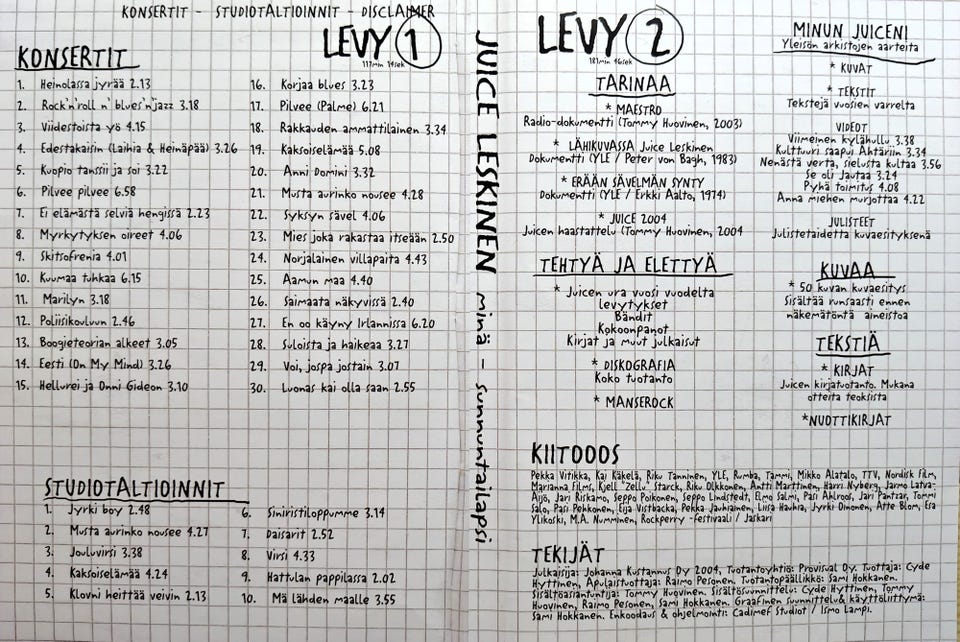 KONSERTIT - STUDIOTALTIOINNIT - DISCLAIMER
LEVY 1
117min 14sek
KONSERTIT
1. Heinolassa jyrää 2.13
2. Rock'n'roll n' blues'n'jazz 3.18
3. Viidestoista yö 4.15
4. Edestakaisin (Laihia & Heinäpää) 3.26
5. Kuopio tanssii ja soi 3.22
6. Pilvee pilvee 6.58
7. Ei elämästä selviä hengissä 2.23
8. Myrkytyksen oireet 4.06
9. Skitsofrenia 4.01
10. Kuumaa tuhkaa 6.15
11. Marilyn 3.18
12. Poliisikouluun 2.46
13. Boogieteorian alkeet 3.05
14. Eesti (On My Mind) 3.26
15. Hellurei ja Onni Gideon 3.10
16. Korjaa blues 3.23
17. Pilvee (Palme) 6.21
18. Rakkauden ammattilainen 3.34
19. Kaksoiselämää 5.08
20. Anni Domini 3.32
21. Musta aurinko nousee 4.28
22. Syksyn sävel 4.06
23. Mies joka rakastaa itseään 2.50
24. Norjalainen villapaita 4.43
25. Aamun maa 4.40
26. Saimaata näkyvissä 2.40
27. En oo käyny Irlannissa 6.20
28. Suloista ja haikeaa 3.27
29. Voi, jospa jostain 3.07
30. Luonas kai olla saan 2.55
STUDIOTALTIOINNIT
1. Jyrki boy 2.48
2. Musta aurinko nousee 4.27
3. Jouluvirsi 3.38
4. Kaksoiselämää 4.24
5. Klovni heittää veivin 2.13
6. Siniristiloppumme 3.14
7. Daisarit 2.52
8. Virsi 4.33
9. Hattulan pappilassa 2.02
10. Mä lähden maalle 3.55
JUICE LESKINEN minä - sunnuntailapsi
LEVY 2
181min 46sek
TARINAA
* MAESTRO
Radio-dokumentti (Tommy Huovinen, 2003)
* LÄHIKUVASSA Juice Leskinen
Dokumentti (YLE / Peter von Bagh, 1983)
* ERÄÄN SÄVELMÄN SYNTY
Dokumentti (YLE / Erkki Aalto, 1974)
* JUICE 2004
Juicen haastattelu (Tommy Huovinen, 2004
TEHTYÄ JA ELETTYÄ
* Juicen ura vuosi vuodelta
levytykset
Bändit
Kokoonpanot
Kirjat ja muut julkaisut
* DISKOGRAFIA
Koko tuotanto
* MANSEROCK
MINUN JUICENI
Yleisön arkistojen aarteita
* KUVAT
* TEKSTIT
Tekstejä vuosien varrelta
VIDEOT
Viimeinen kylähullu 3.38
Kulttuuri saapui Ähtäriin 3.34
Nenästä verta, sielusta kultaa 3.56
Se oli Jautaa 3.24
Pyhä toimitus 4.08
Anna miehen murjottaa 4.22
JULISTEET
Julistetaidetta kuvaesityksenä
KUVAA
* 50 kuvan kuvaesitys
Sisältää runsaasti ennen
näkemätöntä aineistoa
TEKSTIÄ
* KIRJAT
Juicen kirjatuotanto. Mukana
otteita teoksista
*NUOTTIKIRJAT
KIITOOOS
Pekka Vitikka, Kai Käkelä, Riku Tanninen, YLE, Rumba, Tammi, Mikko Alatalo, TTV, Nordisk Film,
Marianna Films, Kjell "Zellu" Starck, Riku Olkkonen, Antti Marttinen, Harri Nyberg, Jarmo Latva-
Äijö, Jari Riskamo, Seppo Poikonen, Seppo Lindstedt, Elmo Salmi, Pasi Ahlroos, Jari Pantzar, Tommi
Salo, Pasi Pehkonen, Eija Vistbacka, Pekka Jauhiainen, Liisa Hauhia, Jyrki Oinonen, Atte Blom, Esa
Ylikoski, M.A. Numminen, Rockperry -festivaali / Jaskari
TEKIJÄT
Julkaisija: Johanna Kustannus Oy 2004, Tuotantoyhtiö: Provisual Oy. Tuottaja: Cyde
Hyttinen, Apulaistuottaja: Raimo Pesonen. Tuotantopäällikkö: Sami Hokkanen.
Sisältöasiantuntija: Tommy Huovinen. Sisältösuunnittelu: Cyde Hyttinen, Tommy
Huovinen, Raimo Pesonen, Sami Hokkanen. Graafinen suunnittelu& käyttöliittymä:
Sami Hokkanen. Enkoodaus & ohjelmointi: Cadimef Studiot / Ismo Lampi.